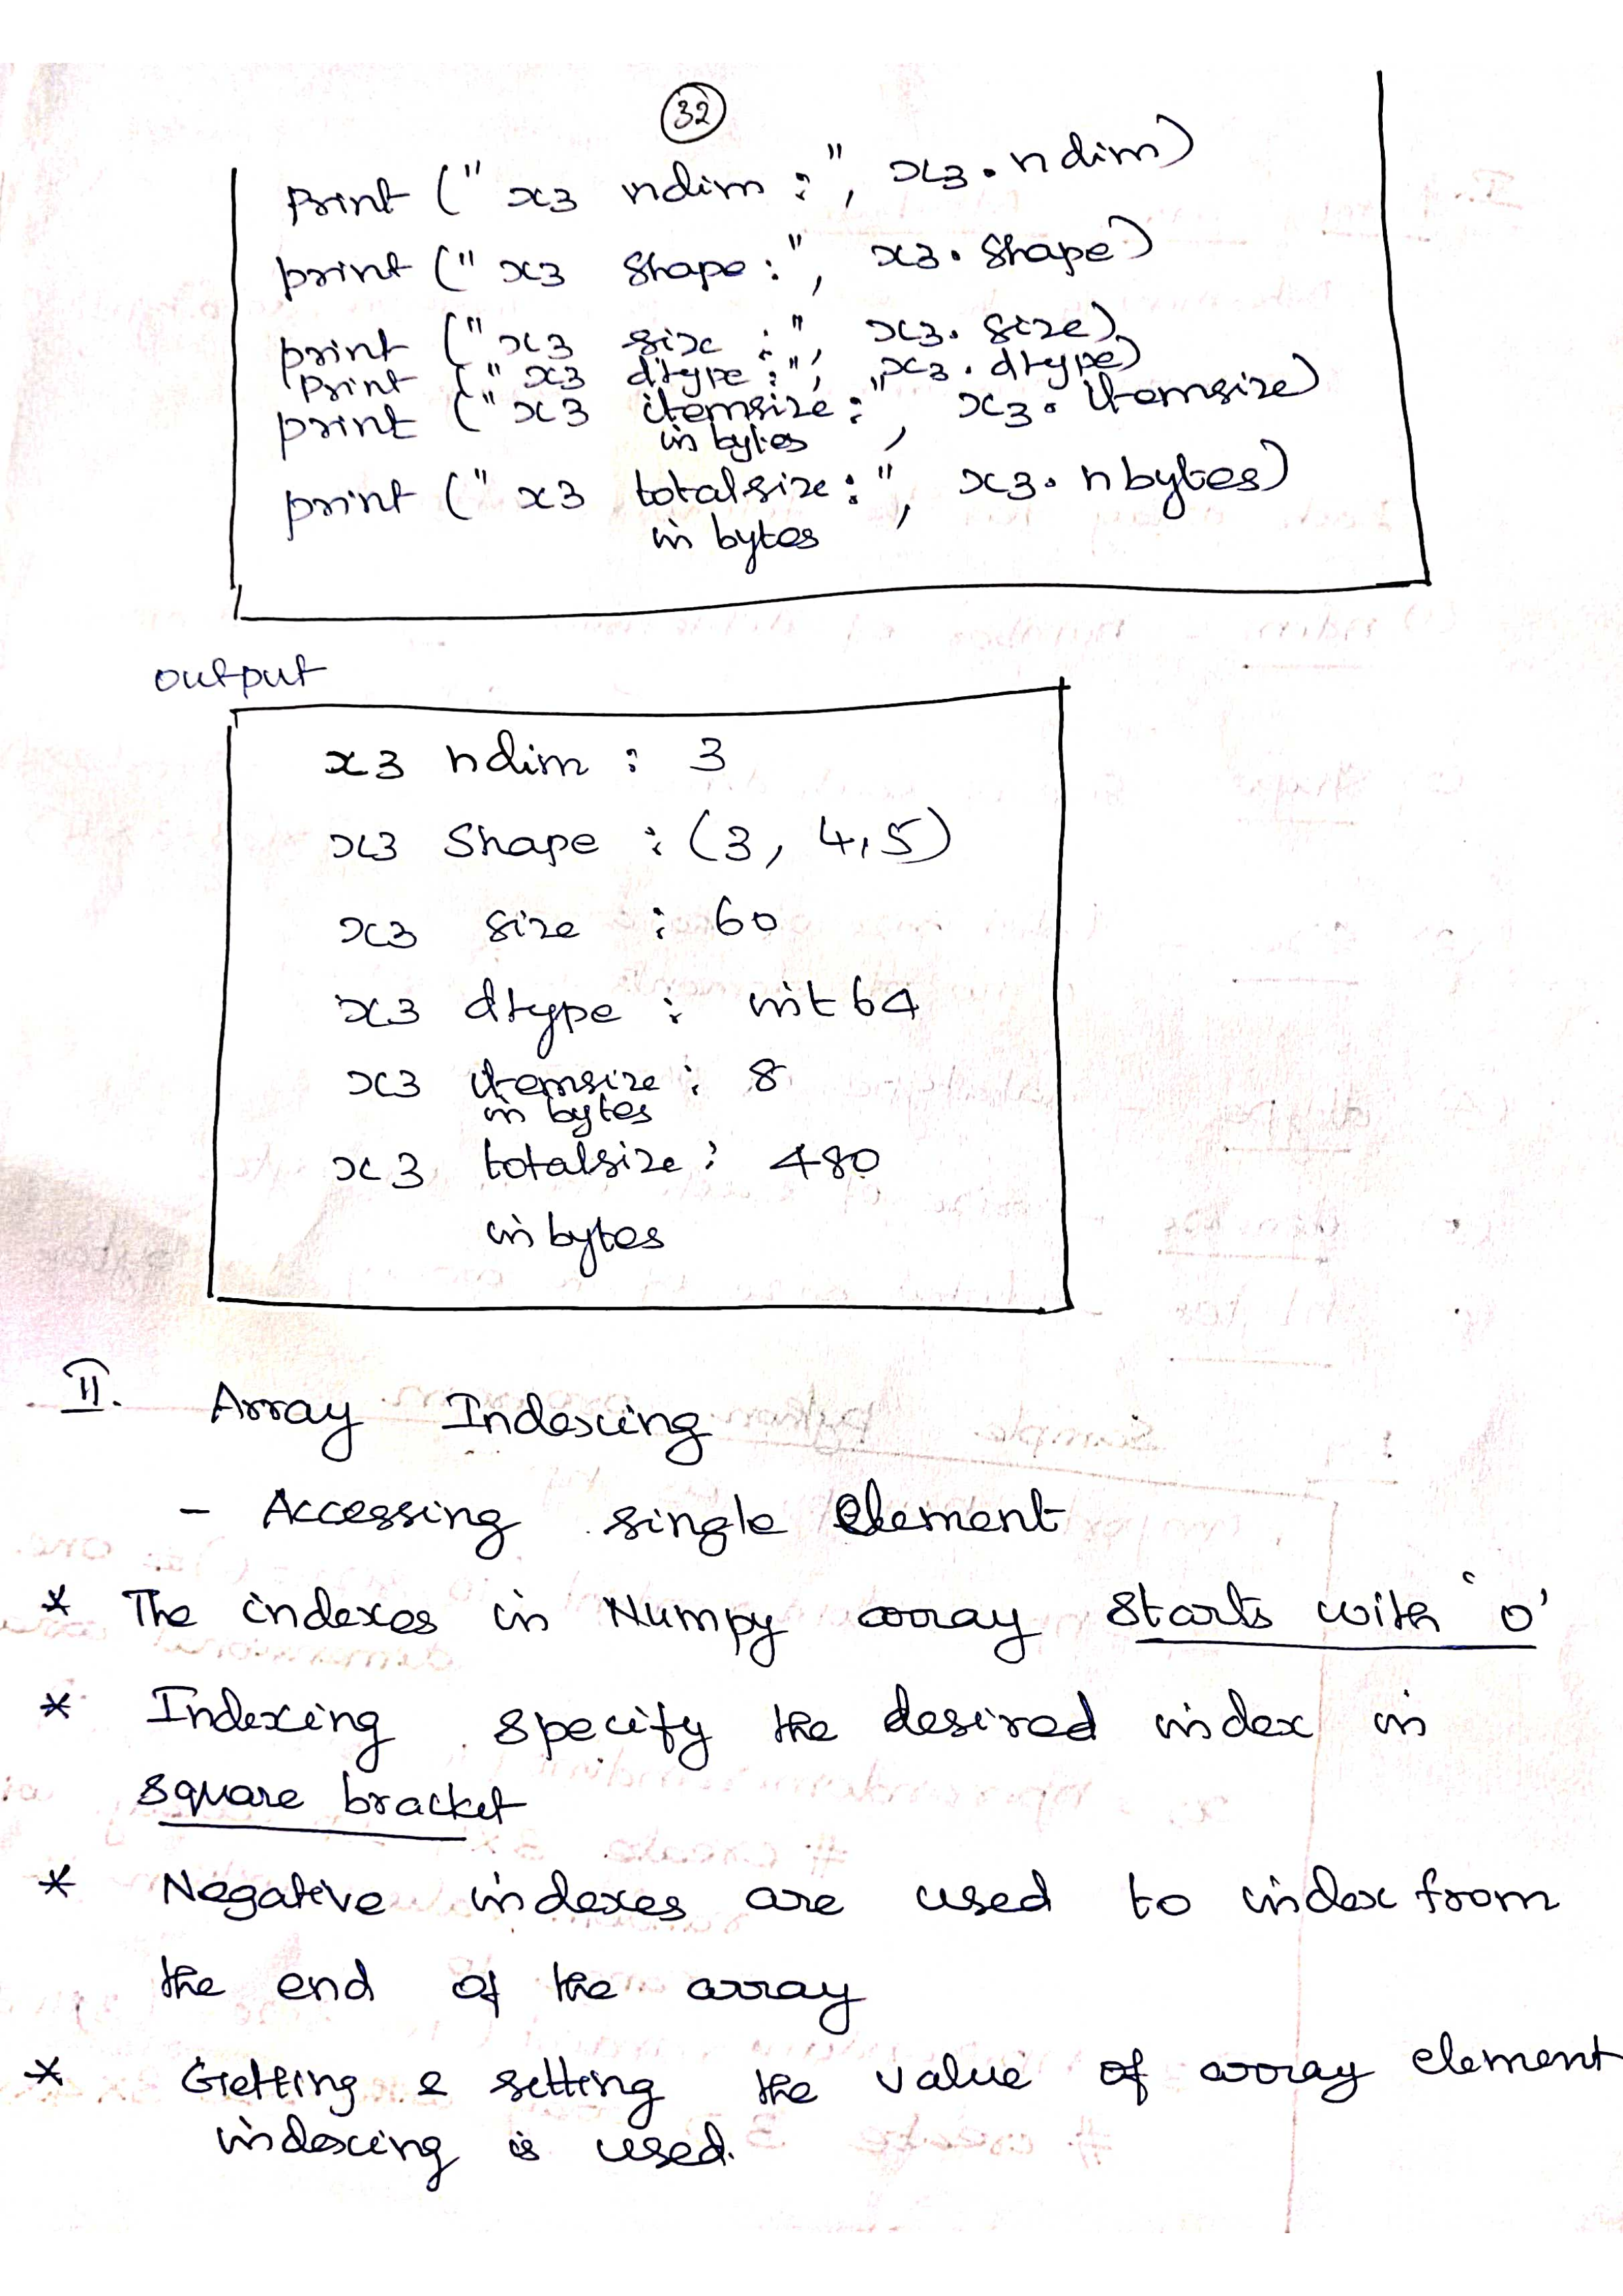 32
print (" x3 ndim : ", x3.ndim)
print (" x3 shape : ", x3.shape)
print (" x3 size : ", x3.size)
print (" x3 dtype : ", x3.dtype)
print (" x3 itemsize : ", x3.itemsize)
in bytes
print (" x3 totalsize : ", x3.nbytes)
in bytes
output
x3 ndim : 3
x3 shape : (3, 4,5)
x3 size : 60
x3 dtype : int64
x3 itemsize : 8
in bytes
x3 totalsize : 480
in bytes
II. Array Indexing
- Accessing single Element
* The indexes in Numpy array starts with '0'
* Indexing specify the desired index in
square bracket
* Negative indexes are used to index from
the end of the array
* Getting & setting the value of array element
indexing is used.